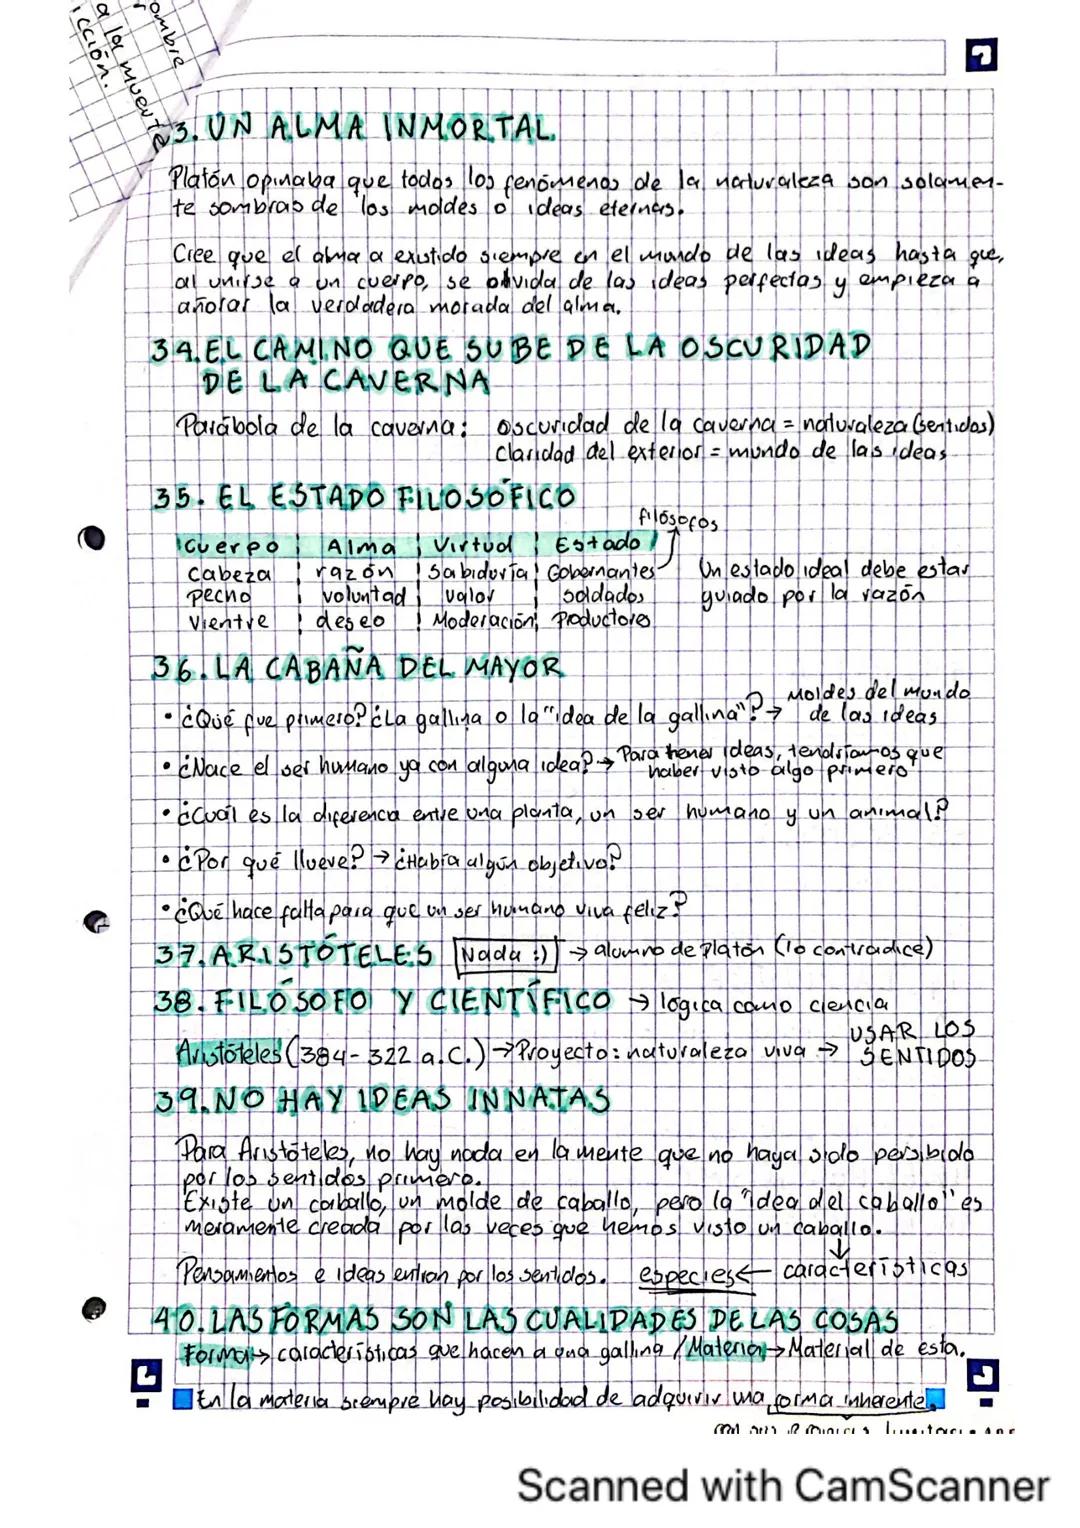 ombre
a la muerte
icción.
3. UN ALMA INMORTAL
Platón opinaba que todos los fenómenos de la naturaleza son solamen-
te sombras de los moldes o ideas eternas.
Cree que el alma a existido siempre en el mundo de las ideas hasta que,
al unirse a un cuerpo, se olvida de las ideas perfectas y empieza a
añorar la verdadera morada del alma.
34. EL CAMINO QUE SUBE DE LA OSCURIDAD
DE LA CAVERNA
Parábola de la caverna: oscuridad de la caverna = naturaleza (sentidos)
claridad del exterior = mundo de las ideas
35. EL ESTADO FILOSÓFICO
filósofos
Cuerpo Alma Virtud Estado
cabeza razón Sabiduría Gobernantes Un estado ideal debe estar
pecho voluntad valor soldados guiado por la razón
Vientre deseo Moderación Productores
36. LA CABAÑA DEL MAYOR
• ¿Qué fue primero? ¿La gallina o la "idea de la gallina"? → Moldes del mundo
de las ideas
• ¿Nace el ser humano ya con alguna idea? → Para tener ideas, tendríamos que
haber visto algo primero
• ¿Cuál es la diferencia entre una planta, un ser humano y un animal?
• ¿Por qué llueve? → ¿Había algún objetivo?
• ¿Qué hace falta para que un ser humano viva feliz?
37. ARISTÓTELES Nada :) → alumno de Platón (lo contradice)
38. FILÓSOFO Y CIENTÍFICO → lógica como ciencia
Aristóteles (384-322 a.C.) → Proyecto: naturaleza viva → USAR LOS
SENTIDOS
39. NO HAY IDEAS INNATAS
Para Aristóteles, no hay nada en la mente que no haya sido persibido
por los sentidos primero.
Existe un caballo, un molde de caballo, pero la "idea del caballo" es
meramente creada por las veces que hemos visto un caballo.
↓
Pensamientos e ideas entran por los sentidos. especies ← características
40. LAS FORMAS SON LAS CUALIDADES DE LAS COSAS
Forma → características que hacen a una gallina / Materia → Material de esta.
En la materia siempre hay posibilidad de adquirir una forma inherente
Scanned with CamScanner